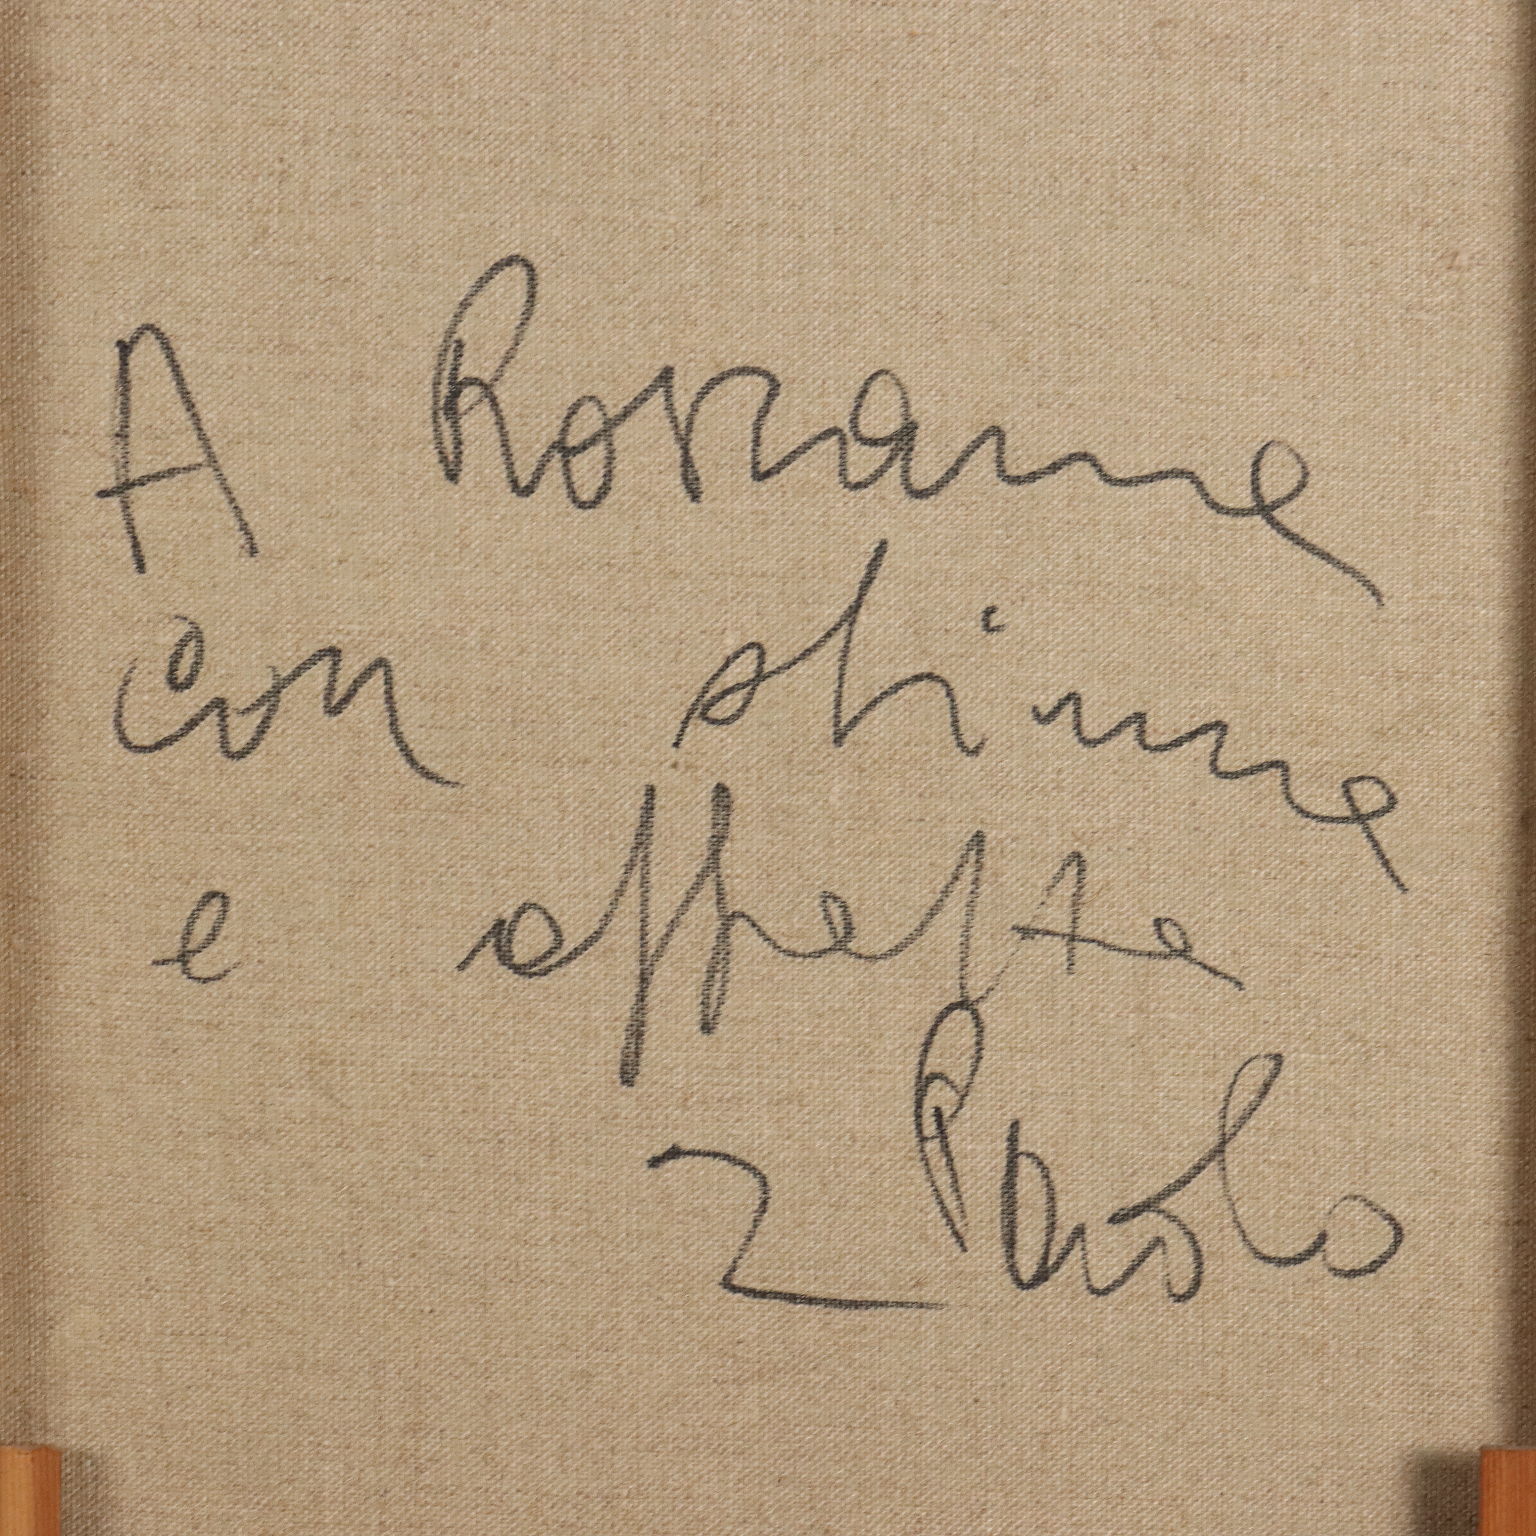 A Rosanna
con stima
e affetto
Paolo